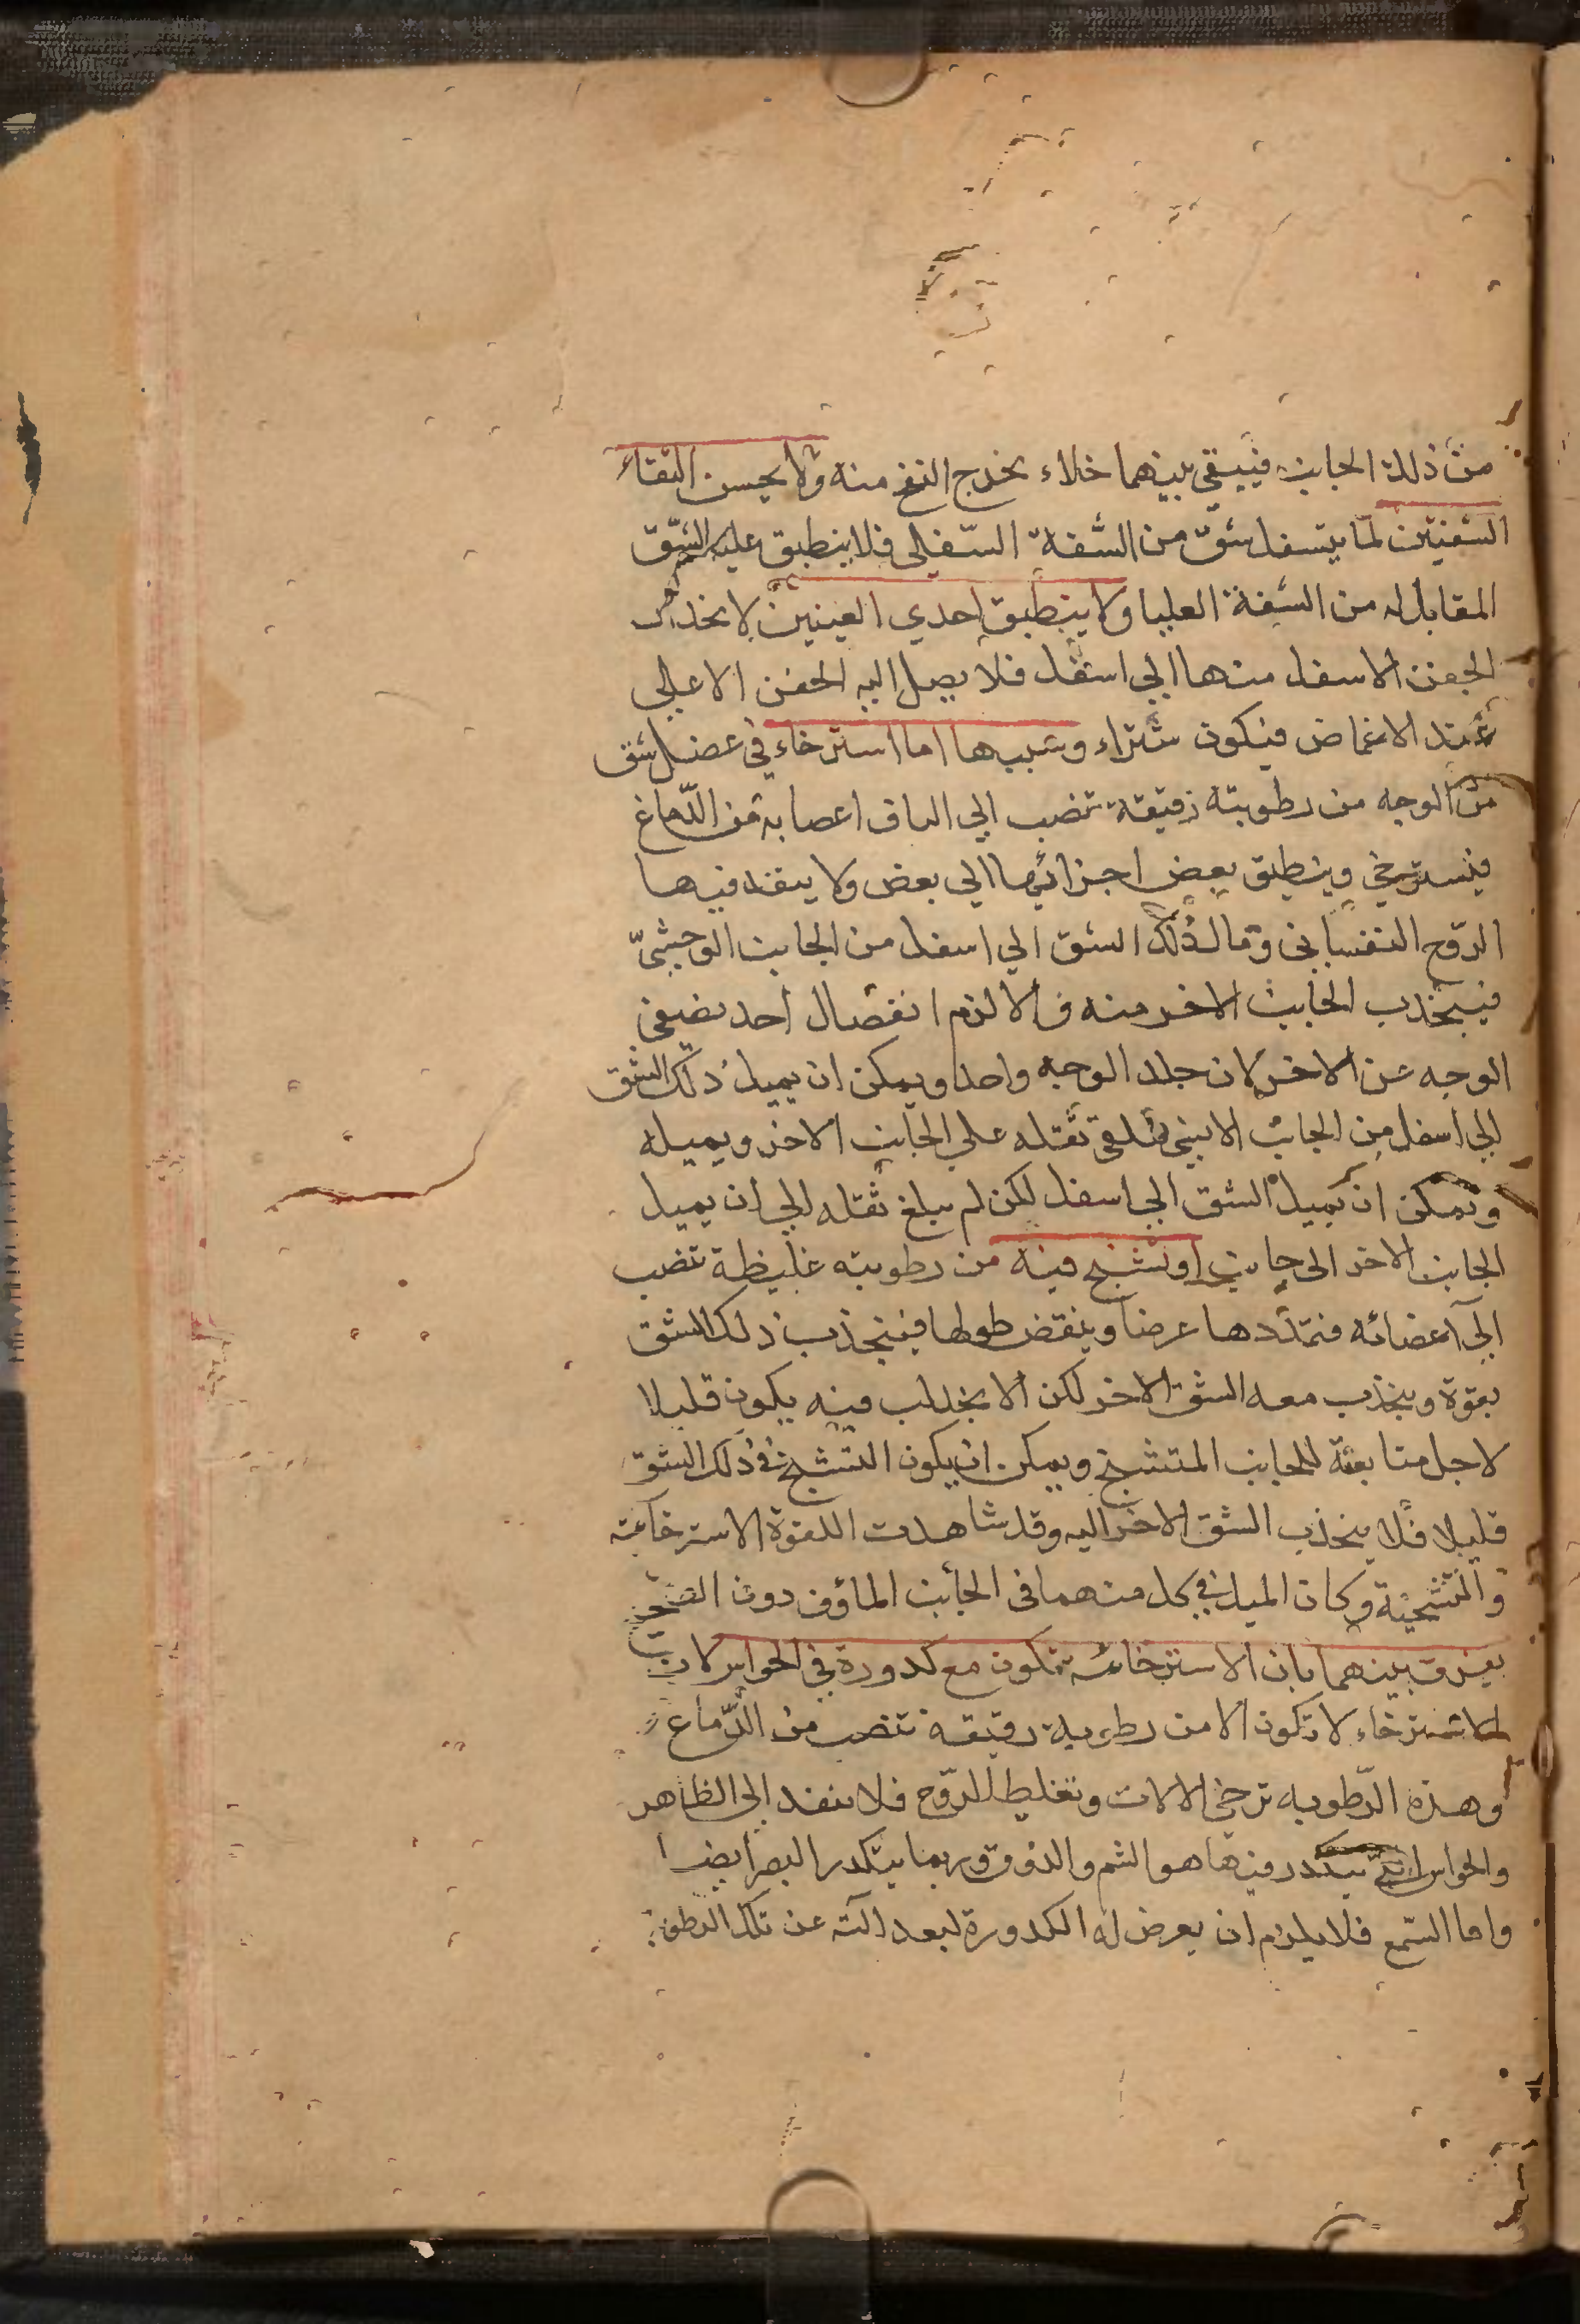 من ذلك الجانب فيبقي بينهما خلاء يخرج النفخ منه ولا يحسن التقاء
الشفتين لما يتسفل شق من الشفة السفلي فلا ينطبق عليه الشق
المقابل له من الشفة العليا ولا ينطبق احدي العينين لانجذاب
الجفن الاسفل منها الي اسفل فلا يصل اليه الجفن الاعلي
عند الاغماض فيكون شتراء وسببها اما استرخاء في عضل شق
من الوجه من رطوبته رقيقة تنصب الي الياف اعصابه من الدماغ
فيسترخي وينطبق بعض اجزائها الي بعض ولا ينفذ فيها
الروح النفساني ومال ذلك الشق الي اسفل من الجانب الوحشي
فينجذب الجانب الاخر منه والا لزم انفصال احد نصفي
الوجه عن الاخر لان جلد الوجه واحد ويمكن ان يميل ذلك الشق
الي اسفل من الجانب الانسي فيلقي ثقله علي الجانب الاخر ويميله
ويمكن ان يميل الشق الي اسفل لكن لم يبلغ ثقله الي ان يميل
الجانب الاخر الي جانب او تشنج فيه من رطوبته غليظة تنصب
الي اعضائه فتمددها عرضا وينقض طولها فينجذب ذلك الشق
بقوة وينجذب معه الشق الاخر لكن الانجذاب فيه يكون قليلا
لاجل متابعة للجانب المتشنج ويمكن ان يكون التشنج في ذلك الشق
قليلا فلا ينجذب الشق الاخر اليه وقد شاهدت اللقوة الاسترخائية
والتشنجية وكان الميل في كل منهما في الجانب الماؤف دون الصحيح
يفرق بينهما بان الاسترخائية تكون مع كدورة في الحواس لان
الاسترخاء لا تكون الا من رطوبة رقيقة تنصب من الدماغ
وهذه الرطوبه ترخي الالات وتغليظ الروح فلا ينفذ الي الظاهر
والحواس التي يتكدر فيها هو الشم والذوق وربما يتكدر البصر ايضا
واما السمع فلا يلزم ان يعرض له الكدورة لبعد آلته عن تلك الرطوبة